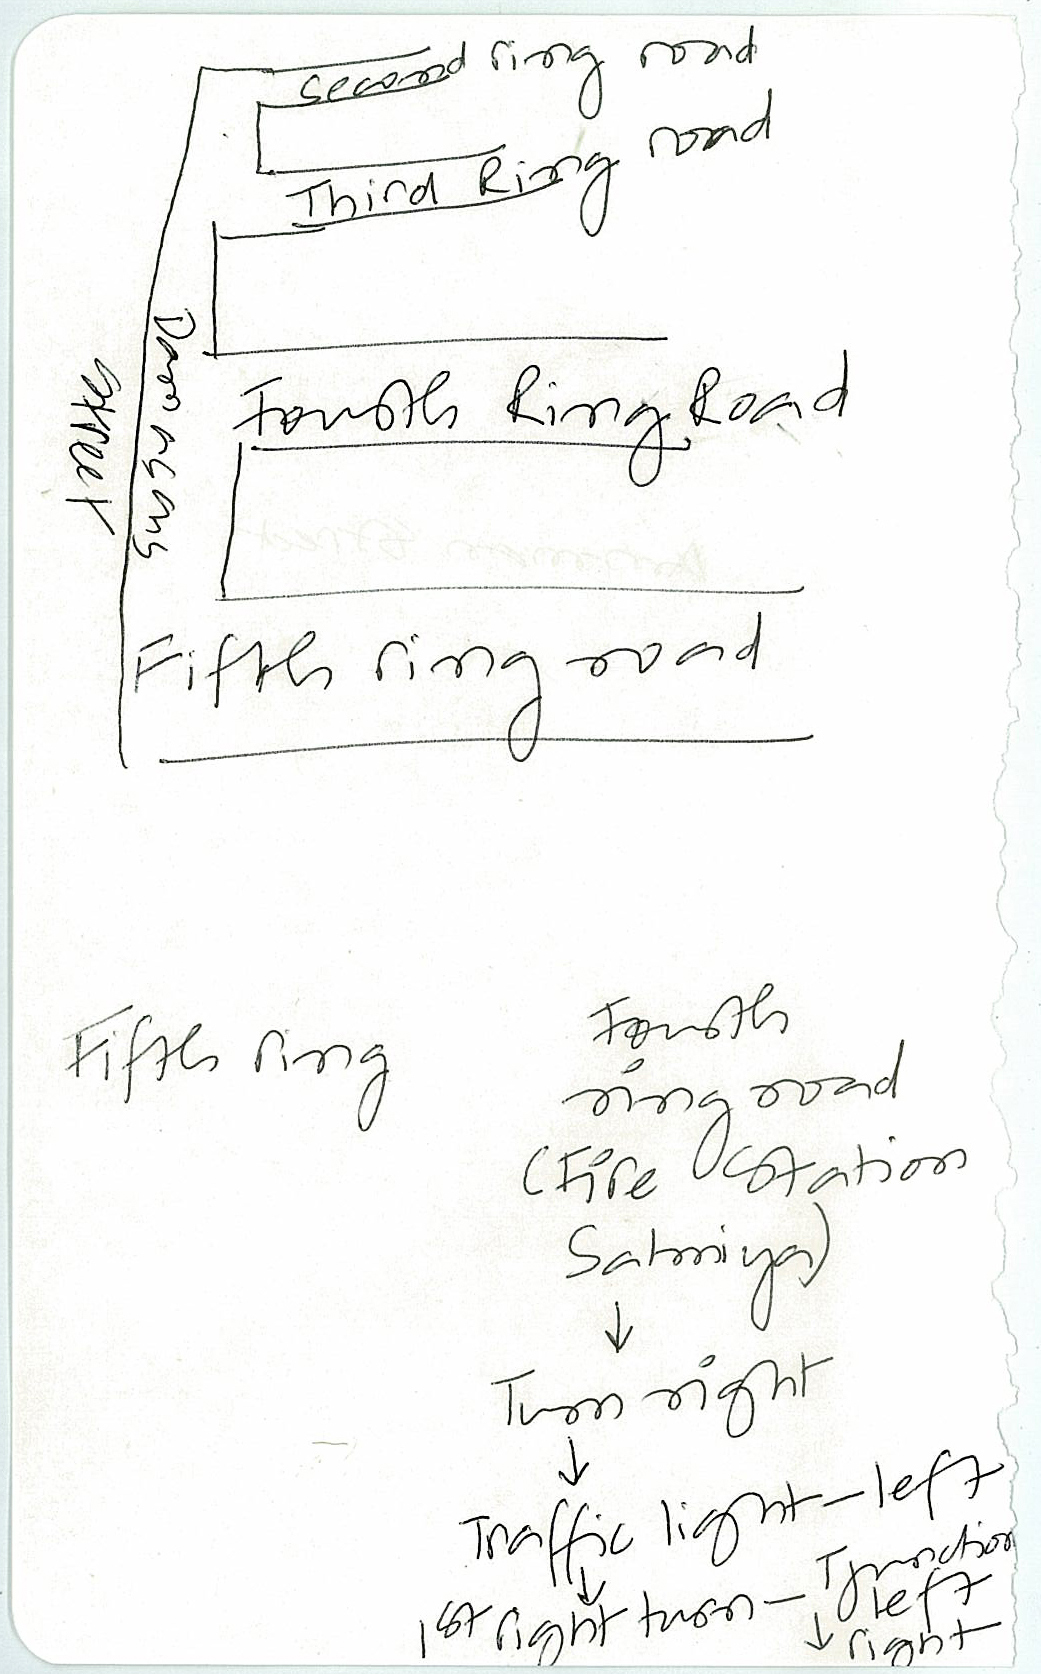 second ring road
Third Ring road
Fourth Ring Road
Fifth ring road
street
Fifth ring
Fourth
ring road
(Fire Station
Salmiya)
↓
Turn right
↓
Traffic light - left
↓
1st right turn - T junction
left
↓ right